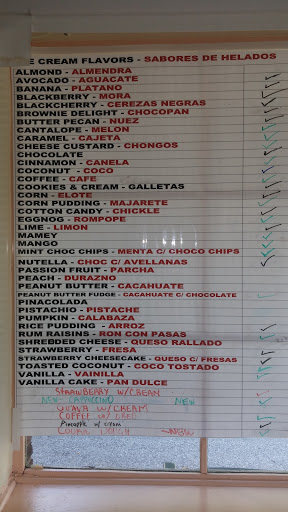 CE CREAM FLAVORS - SABORES DE HELADOS
ALMOND - ALMENDRA
AVOCADO - AGUACATE
BANANA - PLATANO
BLACKBERRY - MORA
BLACKCHERRY - CEREZAS NEGRAS
BROWNIE DELIGHT - CHOCOPAN
BUTTER PECAN - NUEZ
CANTALOPE - MELON
CARAMEL - CAJETA
CHEESE CUSTARD - CHONGOS
CHOCOLATE
CINNAMON - CANELA
COCONUT - COCO
COFFEE - CAFE
COOKIES & CREAM - GALLETAS
CORN - ELOTE
CORN PUDDING - MAJARETE
COTTON CANDY - CHICKLE
EGGNOG - ROMPOPE
LIME - LIMON
MAMEY
MANGO
MINT CHOC CHIPS - MENTA C/ CHOCO CHIPS
NUTELLA - CHOC C/ AVELLANAS
PASSION FRUIT - PARCHA
PEACH - DURAZNO
PEANUT BUTTER - CACAHUATE
PEANUT BUTTER FUDGE - CACAHUATE C/ CHOCOLATE
PINACOLADA
PISTACHIO - PISTACHE
PUMPKIN - CALABAZA
RICE PUDDING - ARROZ
RUM RAISINS - RON CON PASAS
SHREDDED CHEESE - QUESO RALLADO
STRAWBERRY - FRESA
STRAWBERRY CHEESECAKE - QUESO C/ FRESAS
TOASTED COCONUT - COCO TOSTADO
VANILLA - VAINILLA
VANILLA CAKE - PAN DULCE
STRAWBERRY W/CREAM
NEW - CAPPUCCINO NEW
GUAVA W/CREAM
COFFEE W/ OREO
Pineapple w/ cream
COOKIE DOUGH - NEW